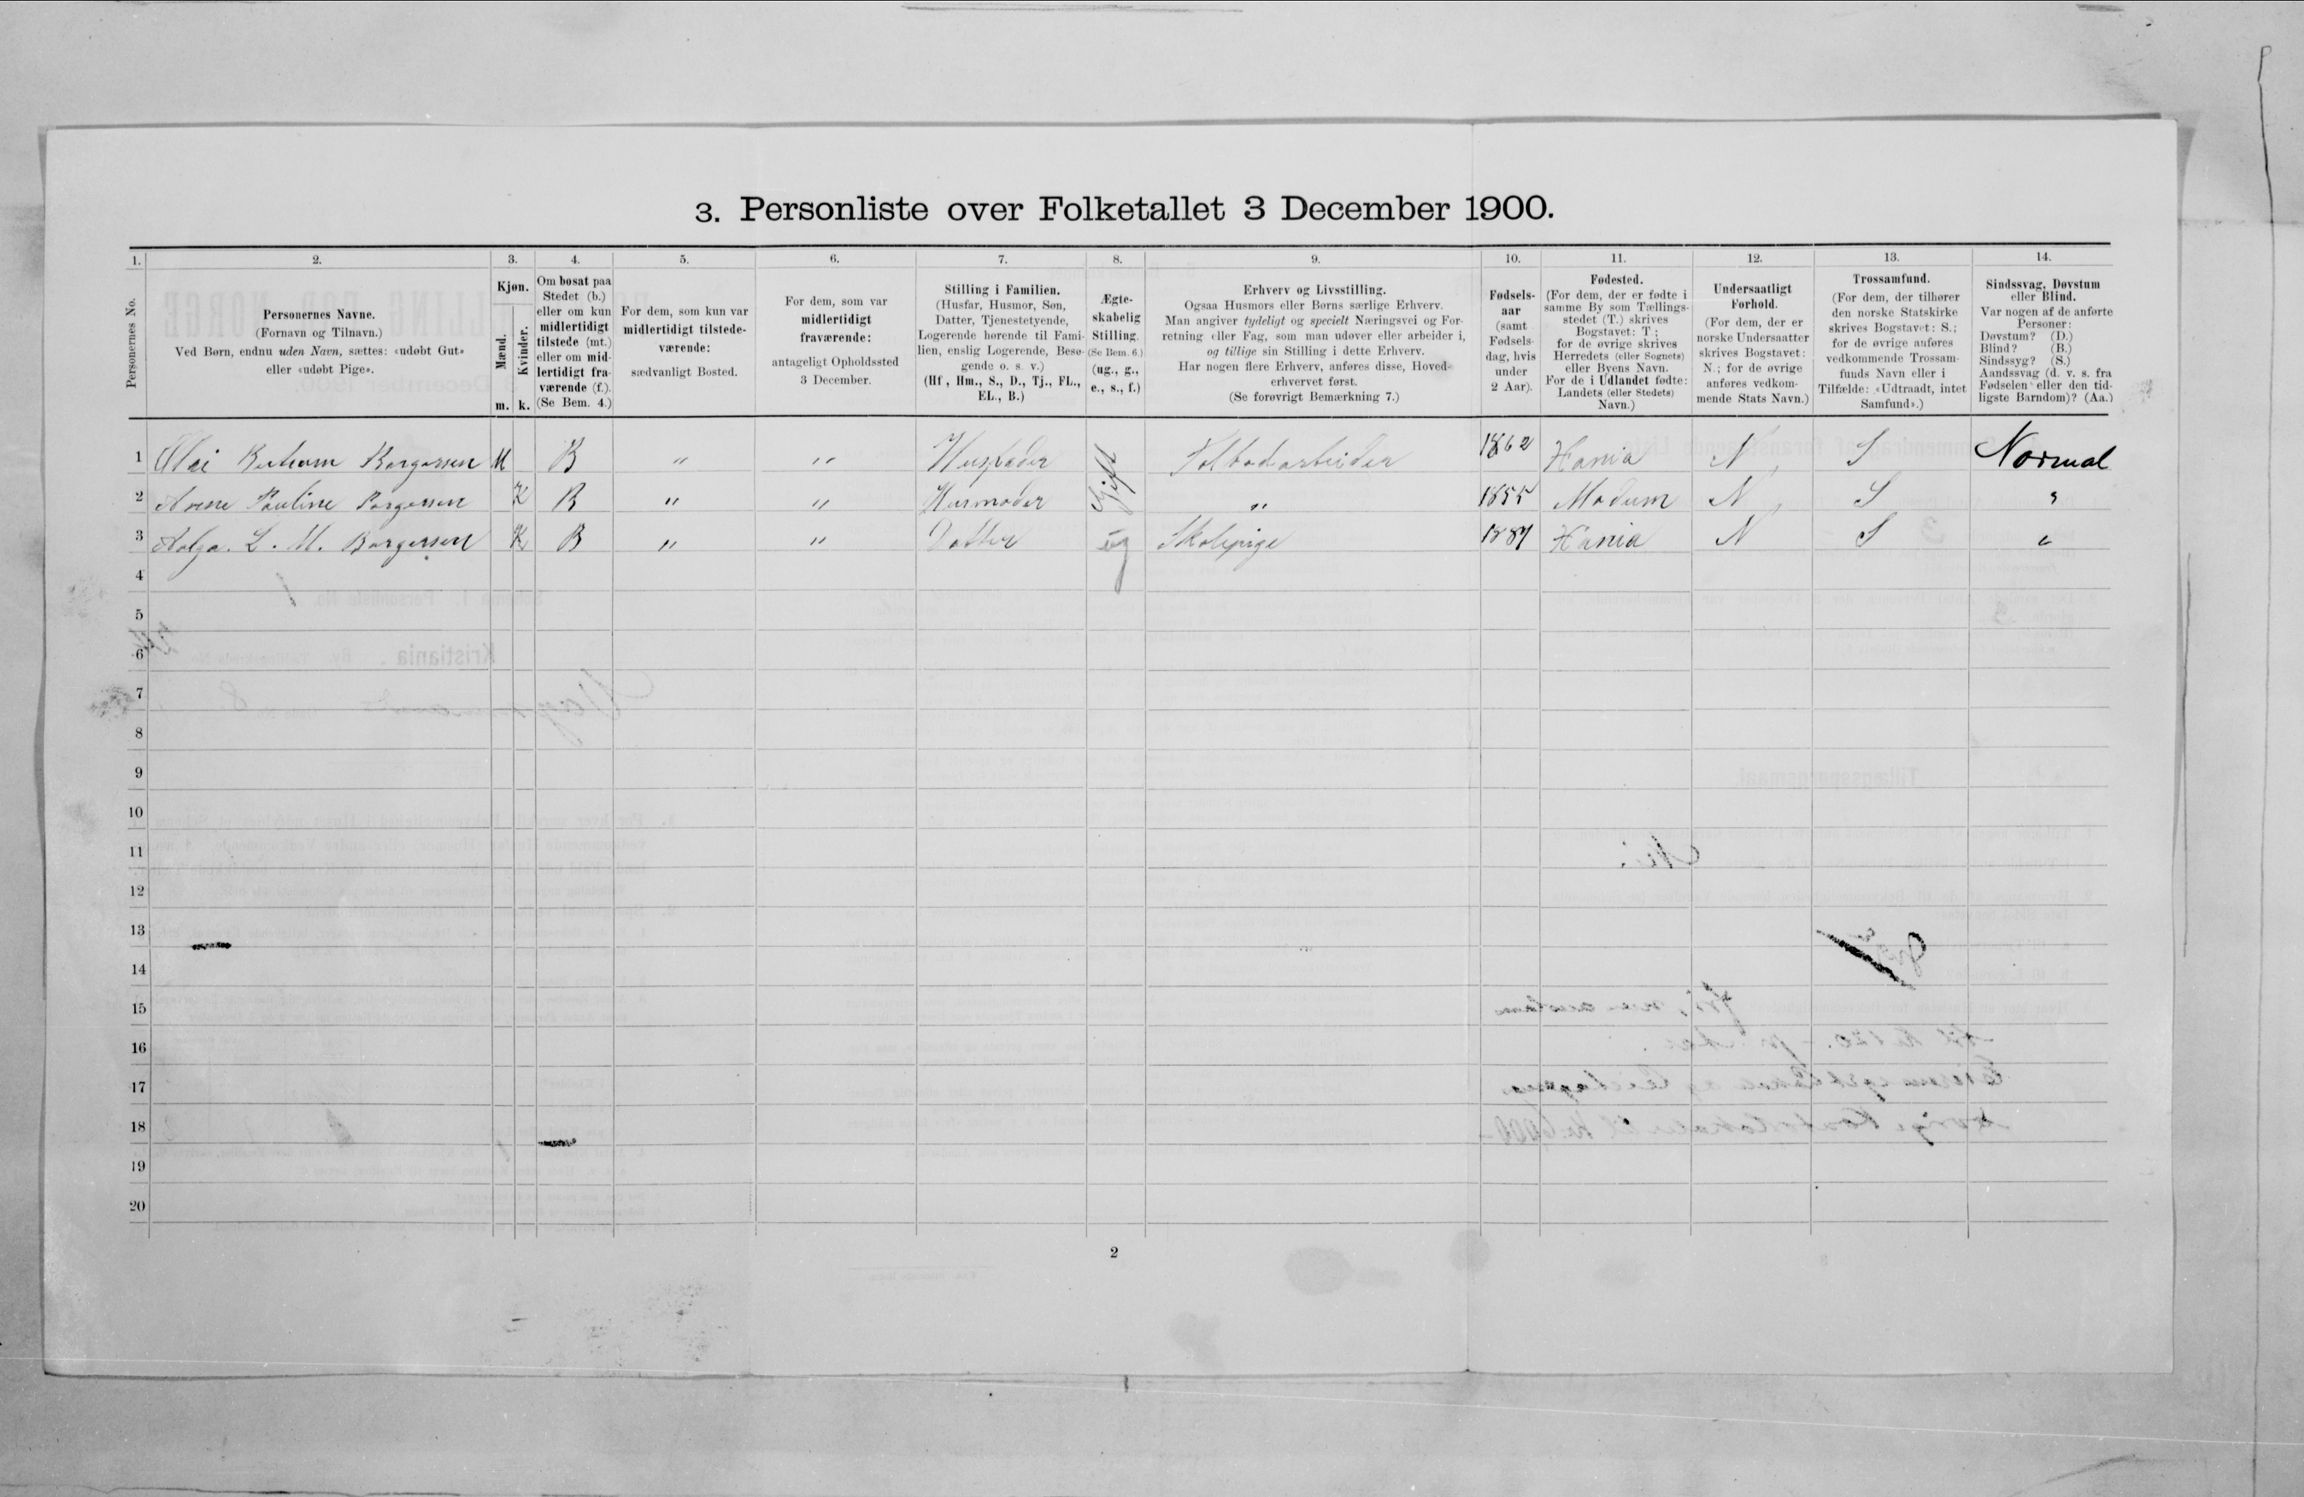 3. Personliste over Folketallet 3 December 1900.
1. 2. 3. 4. 5. 6. 7. 8. 9. 10. 11. 12. 13. 14.
Personernes No.
Personernes Navne.
(Fornavn og Tilnavn.)
Ved Børn, endnu uden Navn, sættes: «udøbt Gut»
eller «udøbt Pige».
Kjøn.
Mænd.
Kvinder.
m. k.
Om bosat paa
Stedet (b.)
eller om kun
midlertidigt
tilstede (mt.)
eller om mid-
lertidigt fra-
værende (f.).
(Se Bem. 4.)
For dem, som kun var
midlertidigt tilstede-
værende:
sædvanligt Bosted.
For dem, som var
midlertidigt
fraværende:
antageligt Opholdssted
3 December.
Stilling i Familien.
(Husfar, Husmor, Søn,
Datter, Tjenestetyende,
Logerende hørende til Fami-
lien, enslig Logerende, Besø-
gende o. s. v.)
(Hf., Hm., S., D., Tj., FL.,
EL., B.)
Ægte-
skabelig
Stilling.
(Se Bem. 6.)
(ug., g.,
e., s., f.)
Erhverv og Livsstilling.
Ogsaa Husmors eller Børns særlige Erhverv.
Man angiver tydeligt og specielt Næringsvei og For-
retning eller Fag, som man udøver eller arbeider i,
og tillige sin Stilling i dette Erhverv.
Har nogen flere Erhverv, anføres disse, Hoved-
erhvervet først.
(Se forøvrigt Bemærkning 7.)
Fødsels-
aar
(samt
Fødsels-
dag, hvis
under
2 Aar).
Fødested.
(For dem, der er fødte i
samme By som Tællings-
stedet (T.) skrives
Bogstavet: T.;
for de øvrige skrives
Herredets (eller Sognets)
eller Byens Navn.
For de i Udlandet fødte:
Landets (eller Stedets)
Navn.)
Undersaatligt
Forhold.
(For dem, der er
norske Undersaatter
skrives Bogstavet:
N.; for de øvrige
anføres vedkom-
mende Stats Navn.)
Trossamfund.
(For dem, der tilhører
den norske Statskirke
skrives Bogstavet: S.;
for de øvrige anføres
vedkommende Trossam-
funds Navn eller i
Tilfælde: «Udtraadt, intet
Samfund».)
Sindssvag, Døvstum
eller Blind.
Var nogen af de anførte
Personer:
Døvstum? (D.)
Blind? (B.)
Sindssyg? (S.)
Aandssvag (d. v. s. fra
Fødselen eller den tid-
ligste Barndom)? (Aa.)
1 Borgersen M B " " Husfader Gift 1862 Hania N S Normal
2 Pauline Borgersen K B " " Husmoder " 1855 Modum N S "
3 L. M. Borgersen K B " " Datter ug Skolepige 1887 Hania N S "
4
5
6
7
8
9
10
11
12
13
14
15
16
17
18
19
20
2